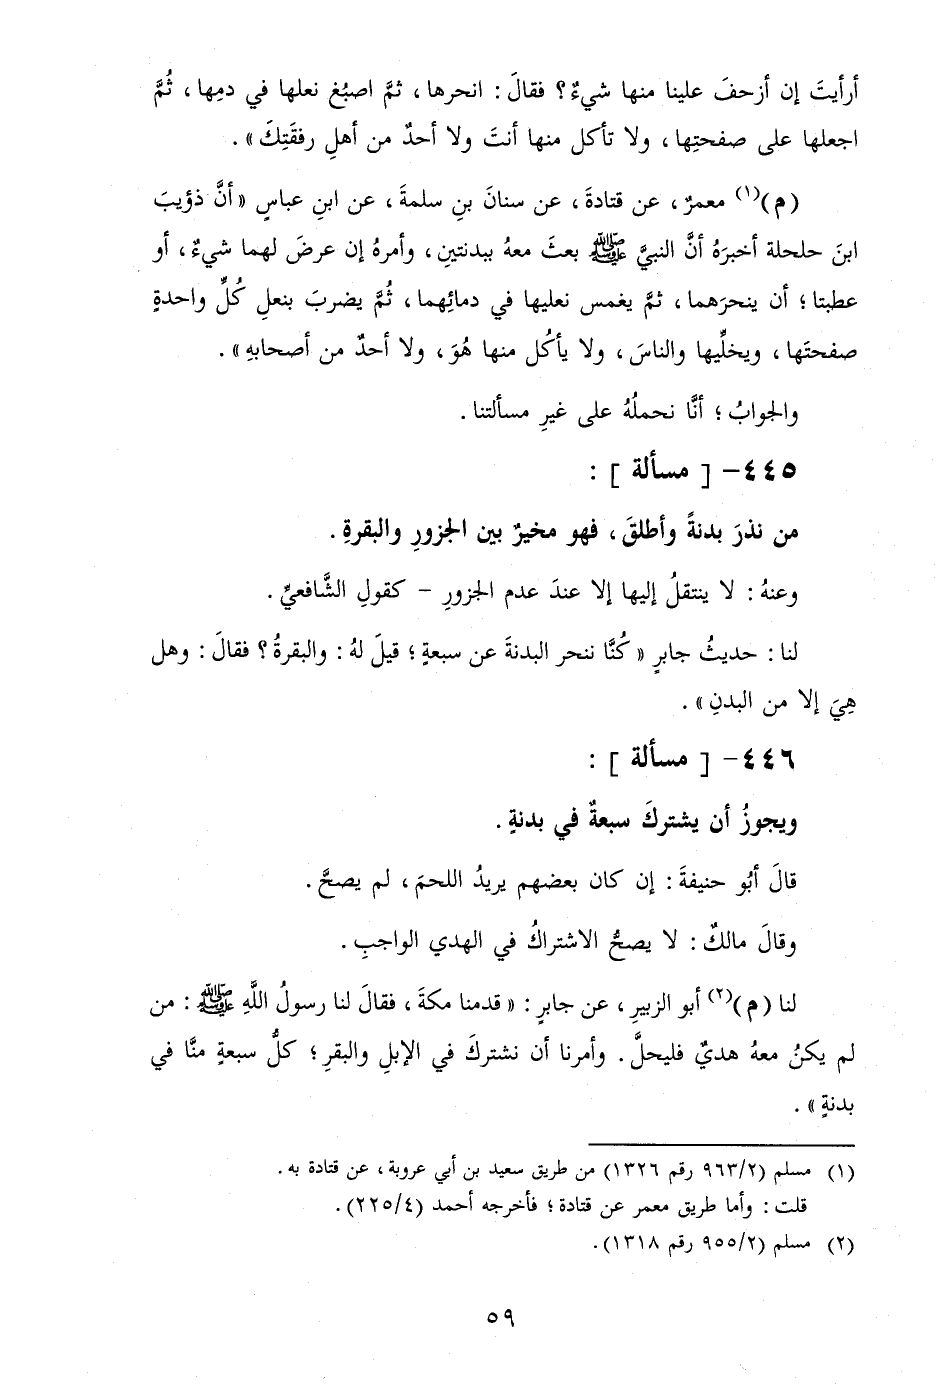 أرأيتَ إن أزحفَ علينا منها شيءٌ؟ فقالَ: انحرها، ثمَّ اصبُغ نعلها في دمِها، ثُمَّ
اجعلها على صفحتِها، ولا تأكل منها أنتَ ولا أحدٌ من أهلِ رفقَتِكَ».
(م)(١) معمرٌ، عن قتادةَ، عن سنانَ بنِ سلمةَ، عن ابنِ عباسٍ «أنَّ ذؤيبَ
ابنَ حلحلة أخبرَهُ أنَّ النبيَّ ﷺ بعثَ معهُ ببدنتينِ، وأمرهُ إن عرضَ لهما شيءٌ، أو
عطبتا؛ أن ينحرَهما، ثمَّ يغمس نعليها في دمائِهما، ثُمَّ يضربَ بنعلِ كُلِّ واحدةٍ
صفحتَها، ويخلِّيها والناسَ، ولا يأكُل منها هُوَ، ولا أحدٌ من أصحابهِ».
والجوابُ؛ أنَّا نحملُهُ على غيرِ مسألتنا.
٤٤٥- [ مسألة ]:
من نذرَ بدنةً وأطلقَ، فهو مخيرٌ بين الجزورِ والبقرةِ.
وعنهُ: لا ينتقلُ إليها إلا عندَ عدم الجزورِ – كقولِ الشَّافعيِّ.
لنا: حديثُ جابرٍ «كُنَّا ننحر البدنةَ عن سبعةٍ؛ قيلَ لهُ: والبقرةُ؟ فقالَ: وهل
هِيَ إلا من البدنِ».
٤٤٦- [ مسألة ]:
ويجوزُ أن يشتركَ سبعةٌ في بدنةٍ.
قالَ أبُو حنيفةَ: إن كان بعضهم يريدُ اللحمَ، لم يصحَّ.
وقالَ مالكٌ: لا يصحُّ الاشتراكُ في الهدي الواجبِ.
لنا (م)(٢) أبو الزبيرِ، عن جابرٍ: «قدمنا مكةَ، فقالَ لنا رسولُ اللَّهِ ﷺ: من
لم يكنُ معهُ هديٌ فليحلَّ. وأمرنا أن نشتركَ في الإبلِ والبقرِ؛ كلُّ سبعةٍ منَّا في
بدنةٍ».
(١) مسلم (٢/٩٦٣ رقم ١٣٢٦) من طريق سعيد بن أبي عروبة، عن قتادة به.
قلت: وأما طريق معمر عن قتادة؛ فأخرجه أحمد (٤/٢٢٥).
(٢) مسلم (٢/٩٥٥ رقم ١٣١٨).
٥٩